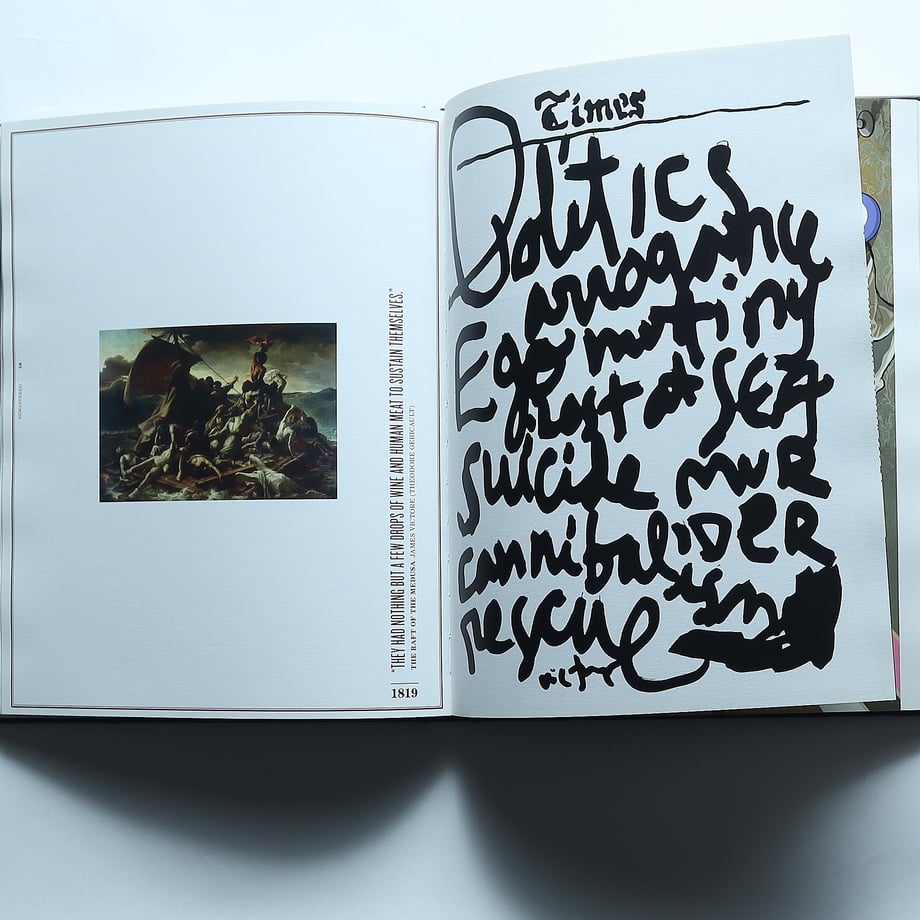 REMASTERED
"THEY HAD NOTHING BUT A FEW DROPS OF WINE AND HUMAN MEAT TO SUSTAIN THEMSELVES."
THE RAFT OF THE MEDUSA JAMES VICTORE (THEODORE GERICAULT)
1819
Times
Politics
arrogance
Ego mutiny
lost at SEA
suicide muR
cannibal DER
ism
rescue
victore